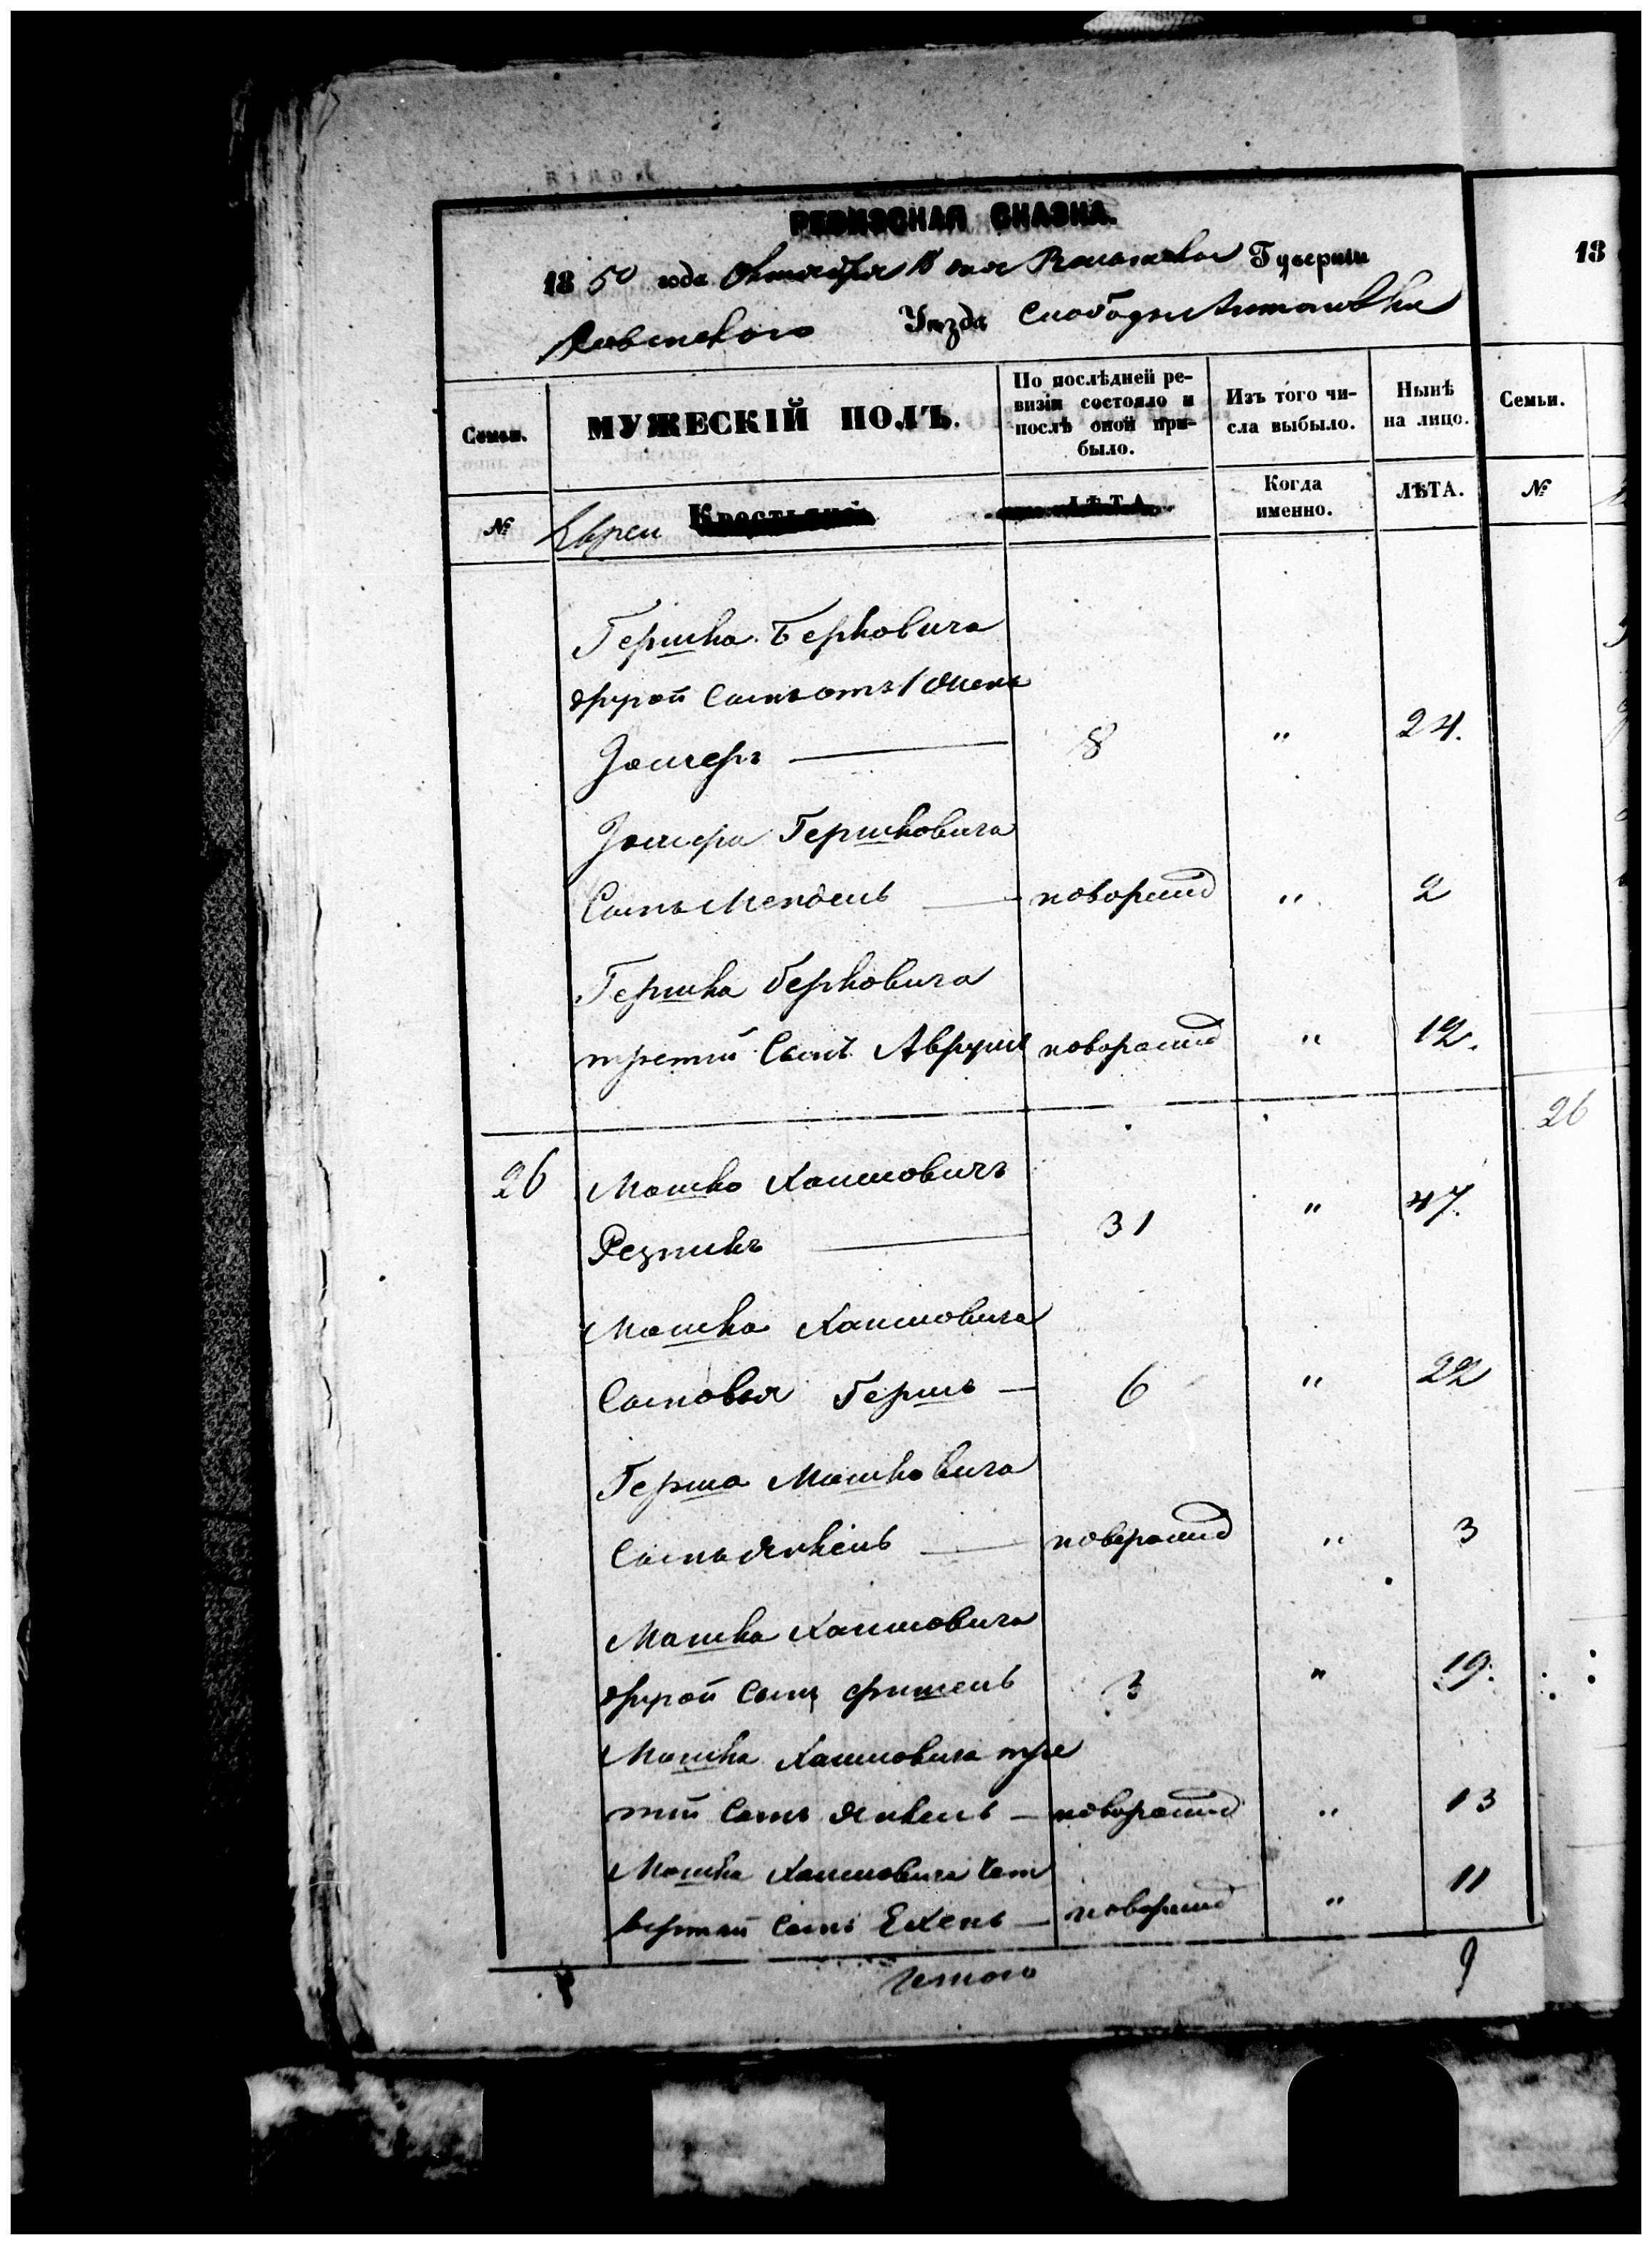 РЕВИЗСКАЯ СКАЗКА.
1850 года Октября 18 дня Волынской Губернии
Ровенского Уѣзда Слободы Антоловки
18
Семьи.
МУЖЕСКІЙ ПОЛЪ.
По послѣдней ре-
визіи состояло и
послѣ оной при-
было.
Изъ того чи-
сла выбыло.
Нынѣ
на лицо.
Семьи.
№
Евреи Крестьяне
ЛѢТА.
Когда
именно.
ЛѢТА.
№
Гершка Берковича
другой Сынъ отъ 1 жены
Зельмеръ 8 " 24.
Гершковича
Сынъ Мендель новорожд " 2
Гершка Берковича
третій Сынъ Аврумъ новорожд " 12.
26 Мошко Хаимовичъ 26
Резникъ 31 " 47.
Мошка Хаимовича
Сыновья Гершъ 6 " 22
Герша Мошковича
Сынъ Янкель новорожд " 3
Мошка Хаимовича
другой Сынъ Фишель 3 " 19.
Мошка Хаимовича тре
тій Сынъ Янкель новорожд " 13
Мошка Хаимовича чет
вертый Сынъ новорожд " 11
Итого 9